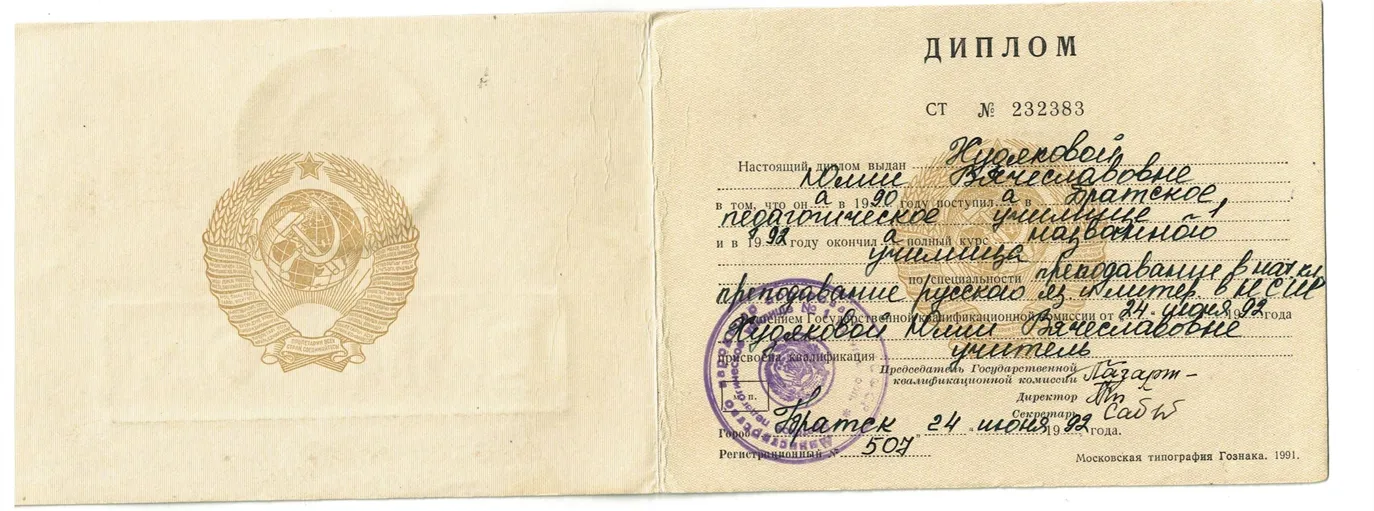 ДИПЛОМ
СТ № 232383
Настоящий диплом выдан Худяковой
Юлии Вячеславовне
в том, что он а в 1990 году поступил а в Братское
педагогическое училище №1
и в 1992 году окончил а полный курс названного
училища
по специальности преподавание в нач. кл.
преподавание русского яз. и литер. в НСШ
Решением Государственной квалификационной комиссии от „24" июня 1992 года
Худяковой Юлии Вячеславовне
присвоена квалификация учитель
Председатель Государственной
квалификационной комиссии
Директор
Секретарь
М. п.
Город Братск „24" июня 1992 года.
Регистрационный № 507
Московская типография Гознака. 1991.